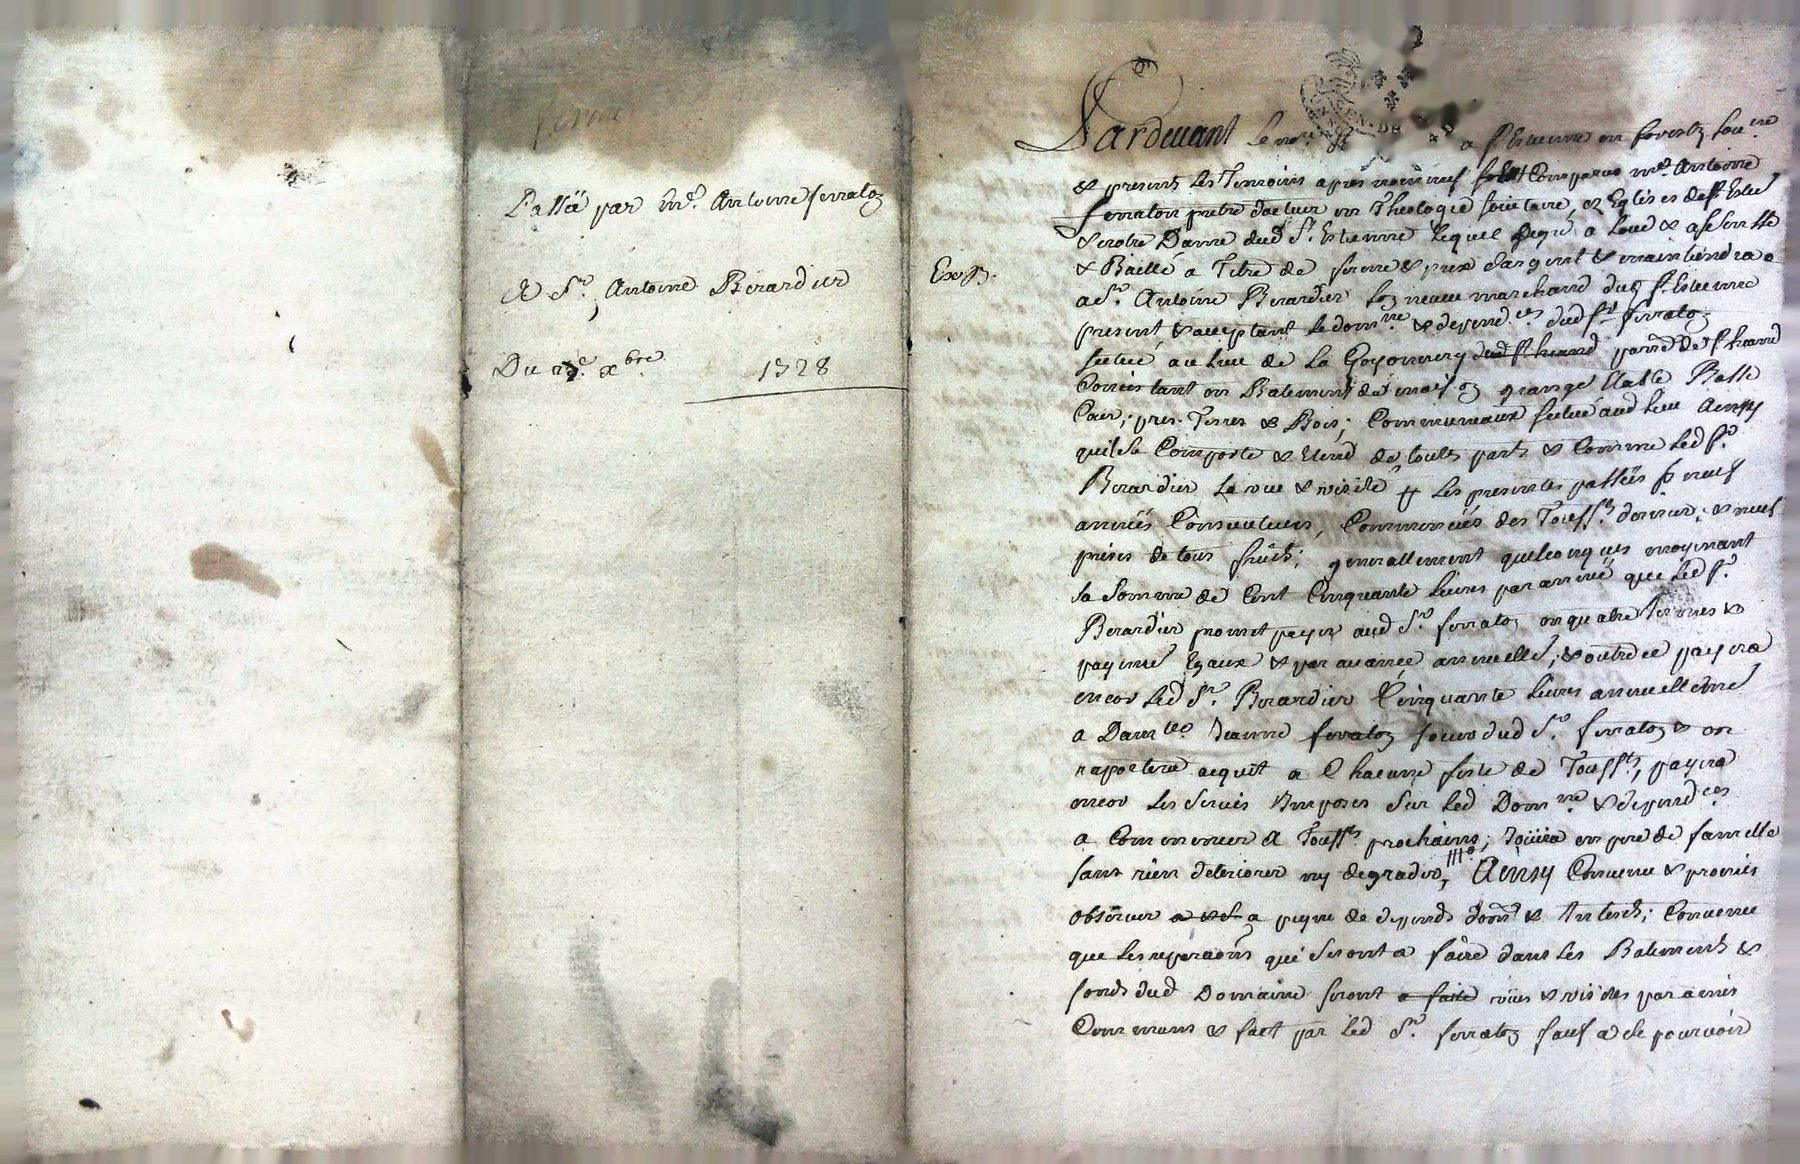 ferme
Passé par Mre. Antoine ferraton
A Sr. Antoine Berardier
Du xbre. 1728
Exp.
Pardevant le nore. a St Estienne en forestz sou.
& presents les Temoins apres nommés Comparu mre. Antoine
ferraton pretre docteur en Theologie societaire es Eglises de St Estie
& notre Dame dud St. Estienne lequel de gré a loué & assensse
& Baillé a Titre de ferme & prix d'argent & maintiendra
a Sr. Antoine Berardier son neveu marchand dud St. Estienne
present & acceptant le domne & depend.ces dud Sr ferraton
situé au lieu de la Goyonnery parre de St heand
Consistant en Batiments de maison grange Estable Basse
Cour, prés Terres & Bois, Communeaux situé aud lieu Ainsy
quil se Comporte & etend de toutes parts & Comme led Sr.
Berardier la vue & visité les presentes passées pr neuf
années Consecutives, Commencées des Toussts dernier, & neuf
prises de tous fruits, generallement quelconques moyenant
la Somme de Cent Cinquante livres par année que led Sr.
Berardier promet payer aud Sr. ferraton en quatre Termes &
payemts Egaux & par avance annuelle, & outre ce payera
encor led Sr. Berardier Cinquante livres annuellemt
a Damlle Jeanne ferraton soeur dud Sr. ferraton & en
raportera acquit a Chacune feste de Toussts, payera
encor les servis Imposés Sur led Domne & dependces
a Commencer a Toussts prochains; Joüira en pere de famille
sans rien deteriorer ny degrader, Ainsy Convenu & promis
observer a peyne de depends domts & Interets; Convenu
que les reparaons qui seront a faire dans les Batiments &
fonds dud Domaine seront a faite vües & visitées par amis
Communs & fait par led Sr. ferraton sauf a se pourvoir